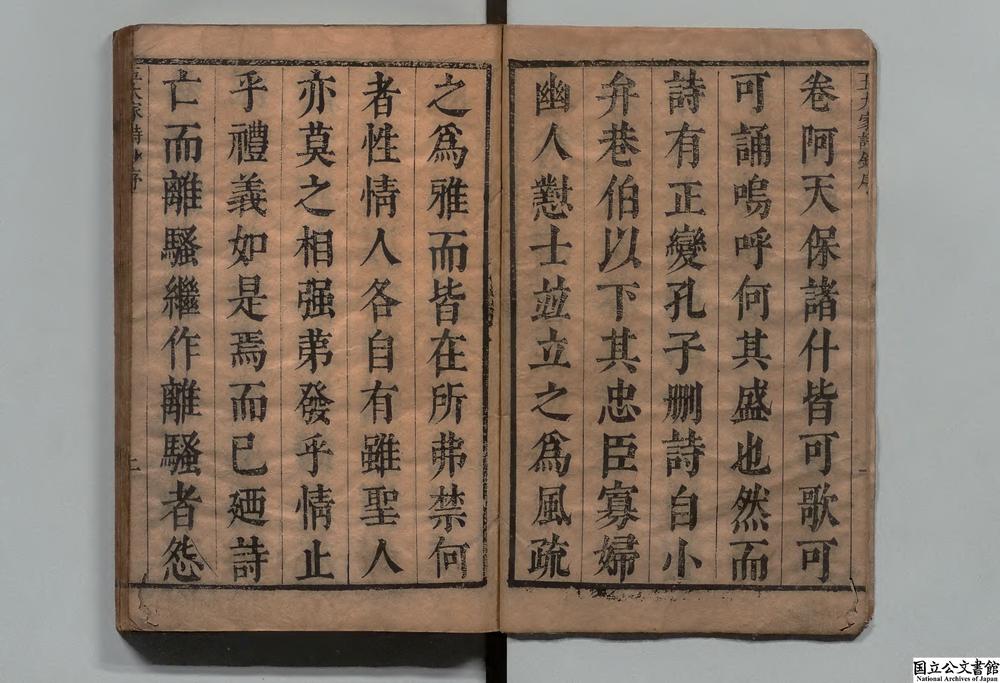 卷阿天保諸什皆可歌可
可誦嗚呼何其盛也然而
詩有正變孔子刪詩自小
弁巷伯以下其忠臣寡婦
幽人懟士並立之爲風疏
之爲雅而皆在所弗禁何
者性情人各自有雖聖人
亦莫之相强第發乎情止
乎禮義如是焉而已廼詩
亡而離騷繼作離騷者怨
国立公文書館
National Archives of Japan